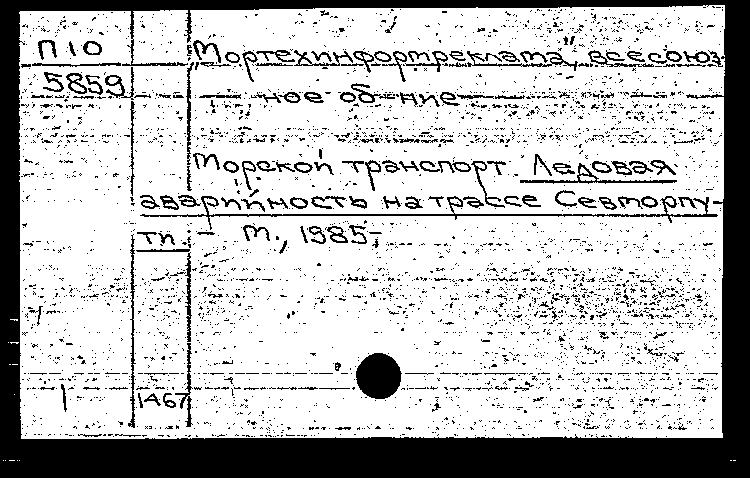 П10 „Мортехинформреклама", всесоюз-
5859 ное об-ние
Морской транспорт. Ледовая
аварийность на трассе Севморпу-
ти. – М., 1985-
1 1467